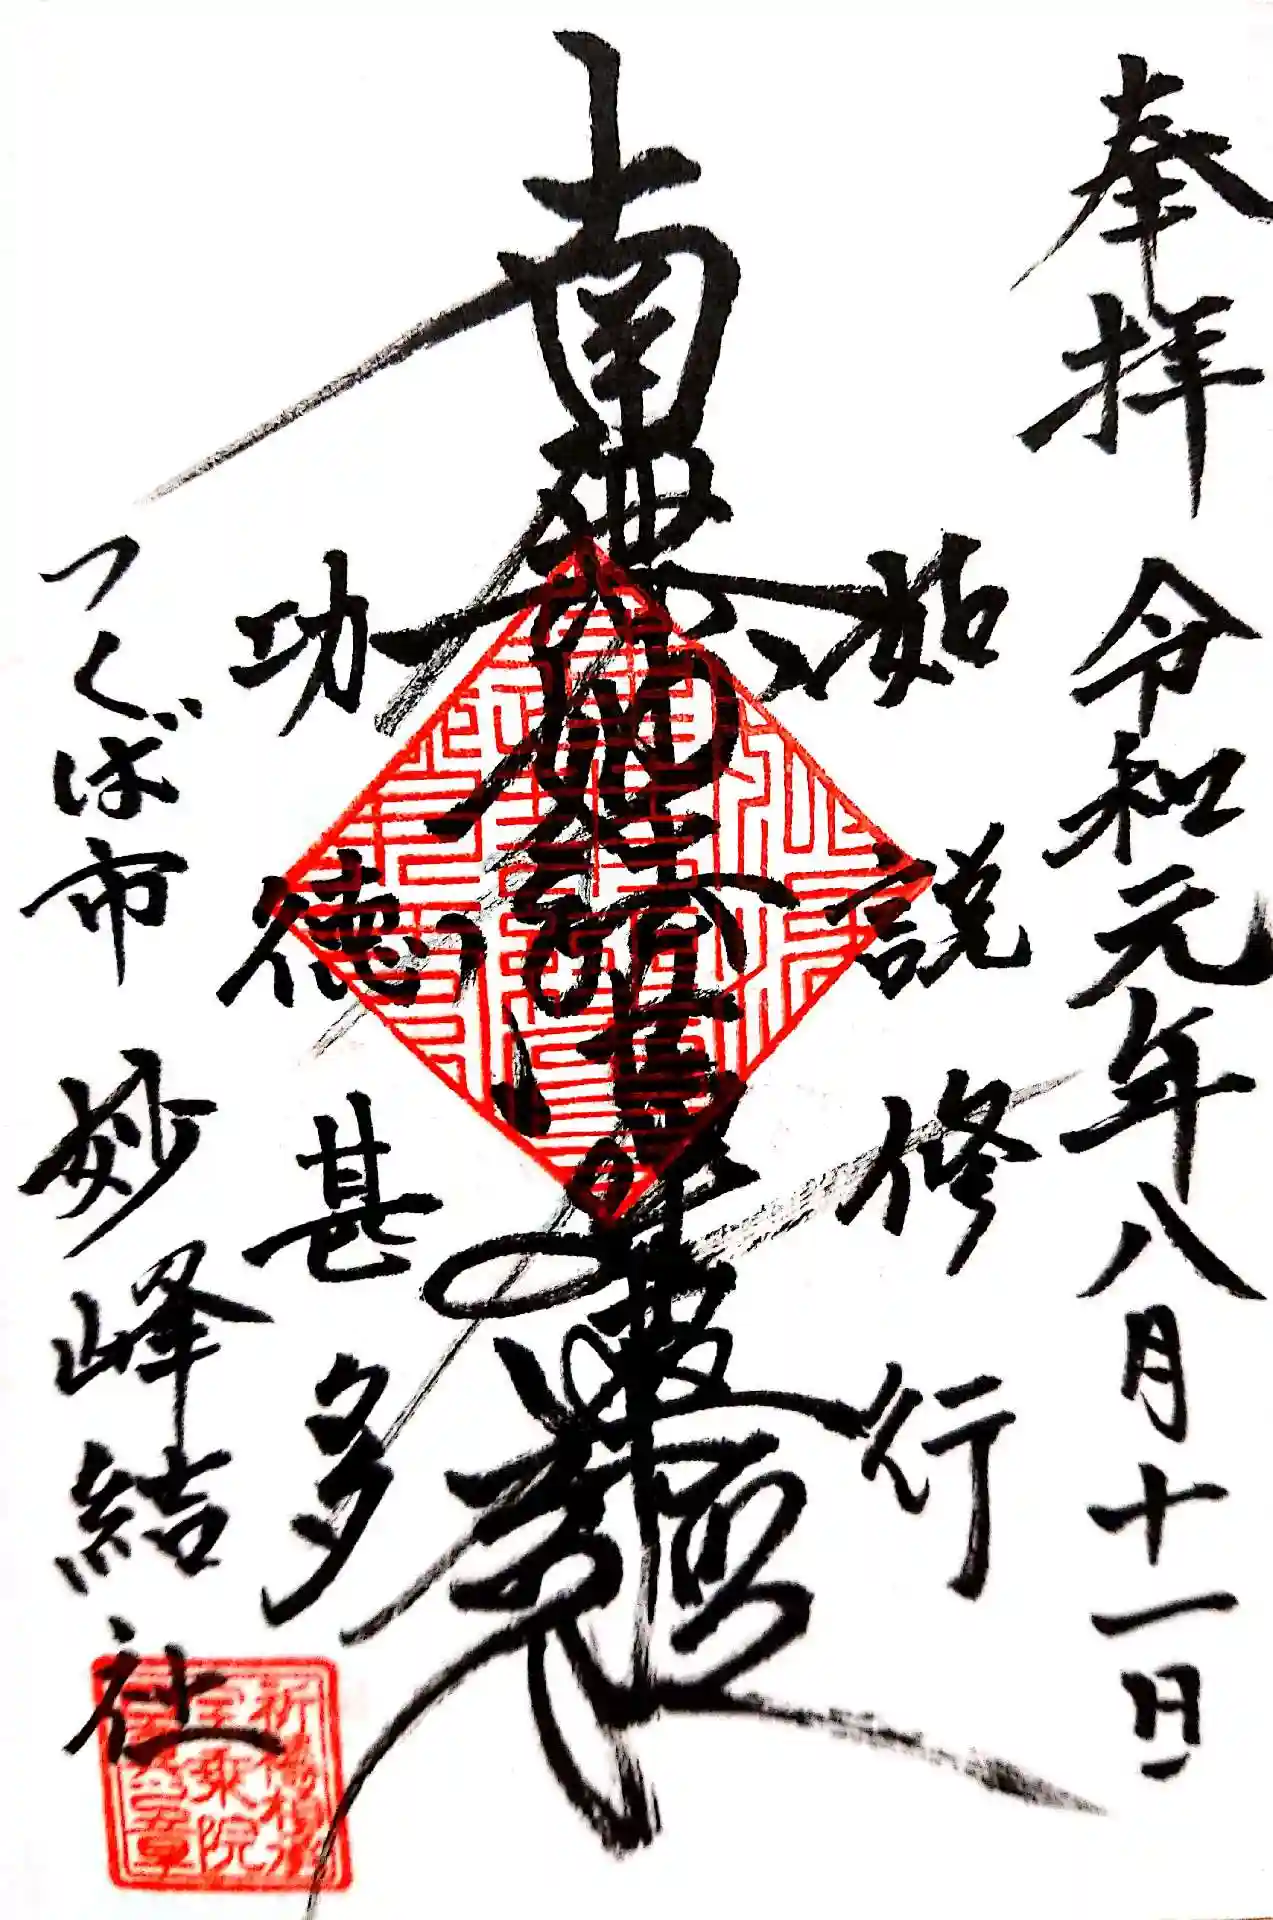 奉拝 令和元年八月十一日
如説修行
南無妙法蓮華経
功徳甚多
つくば市 妙峰結社